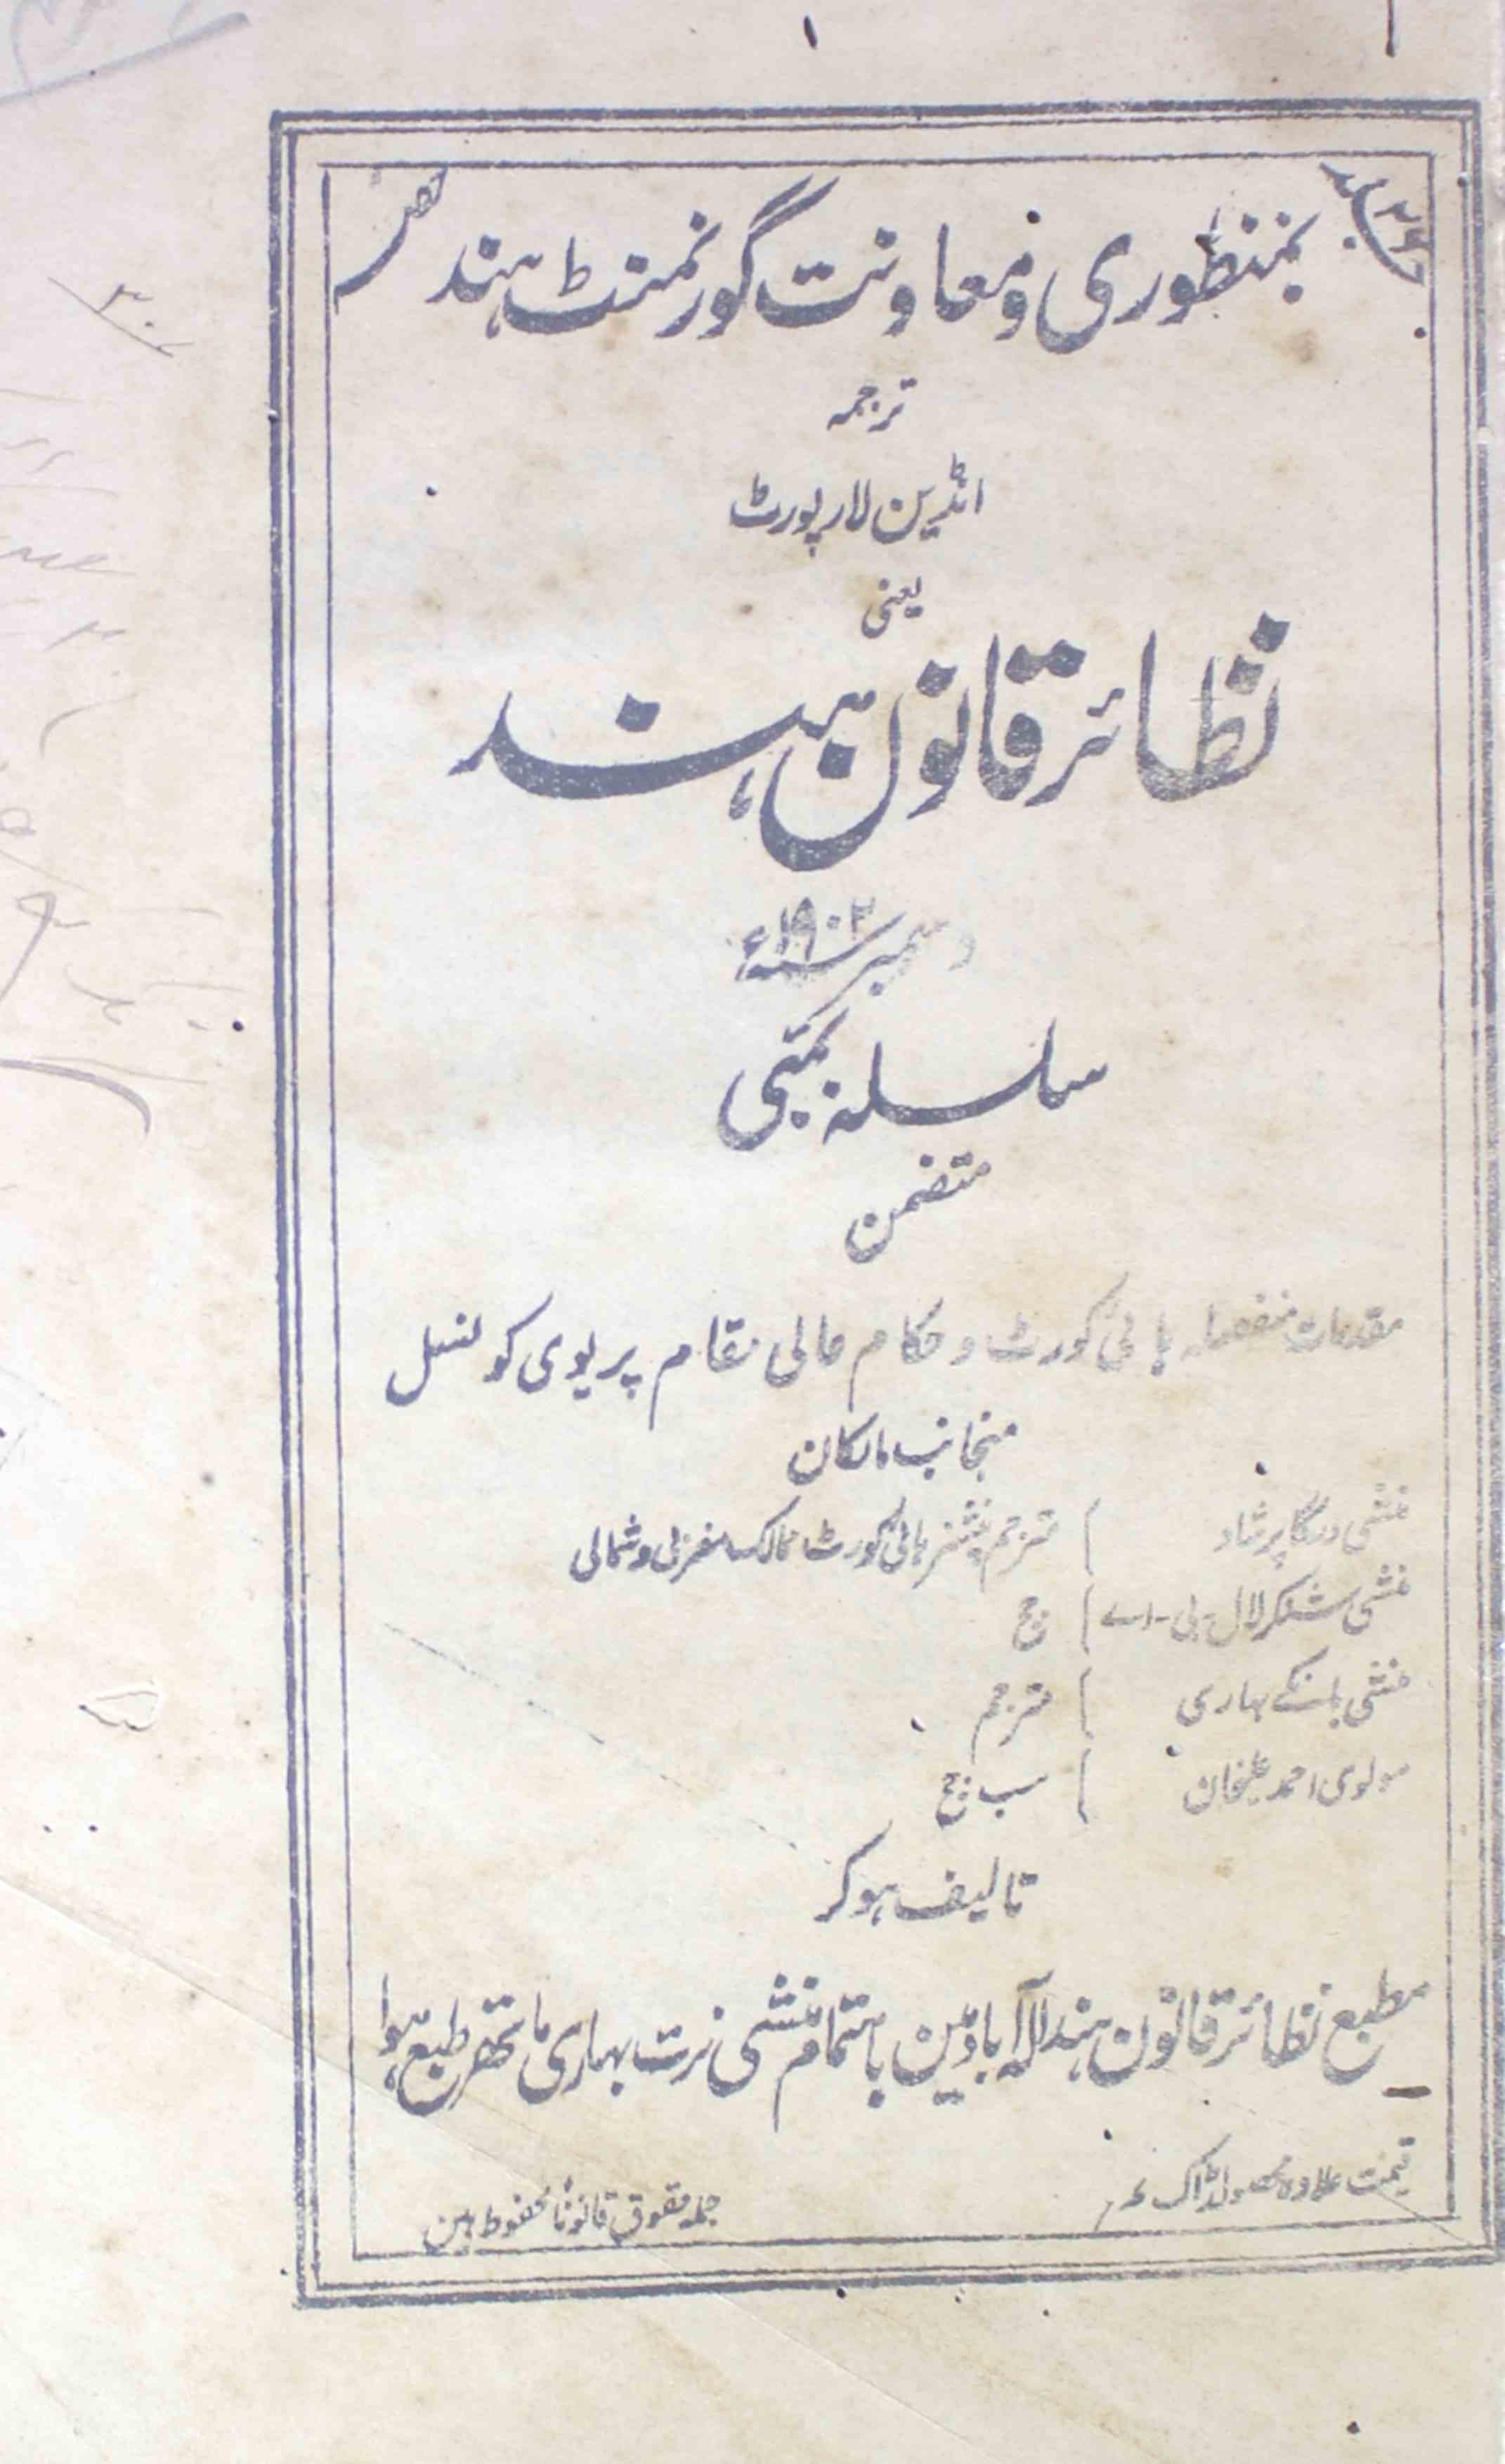 ۱
بمنظوری و معاونت گورنمنٹ ہند
ترجمہ
انڈین لا رپورٹ
یعنی
نظائر قانون ہند
دسمبر سنہ ۱۹۰۲ء
سلسلہ بمبئی
متضمن
مقدمات منفصلہ ہائی کورٹ و حکام عالی مقام پریوی کونسل
منجانب مالکان
منشی درگا پرشاد مترجم پنشنر ہائی کورٹ ممالک مغربی و شمالی
منشی شنکر لال - بی - اے جج
منشی بانکے بہاری مترجم
مولوی احمد علیخان سب جج
تالیف ہوکر
مطبع نظائر قانون ہند الہ آباد مین باہتمام منشی نرت بہاری ماتھر طبع ہوا
قیمت علاوہ محصول ڈاک
جملہ حقوق قانوناً محفوظ ہین